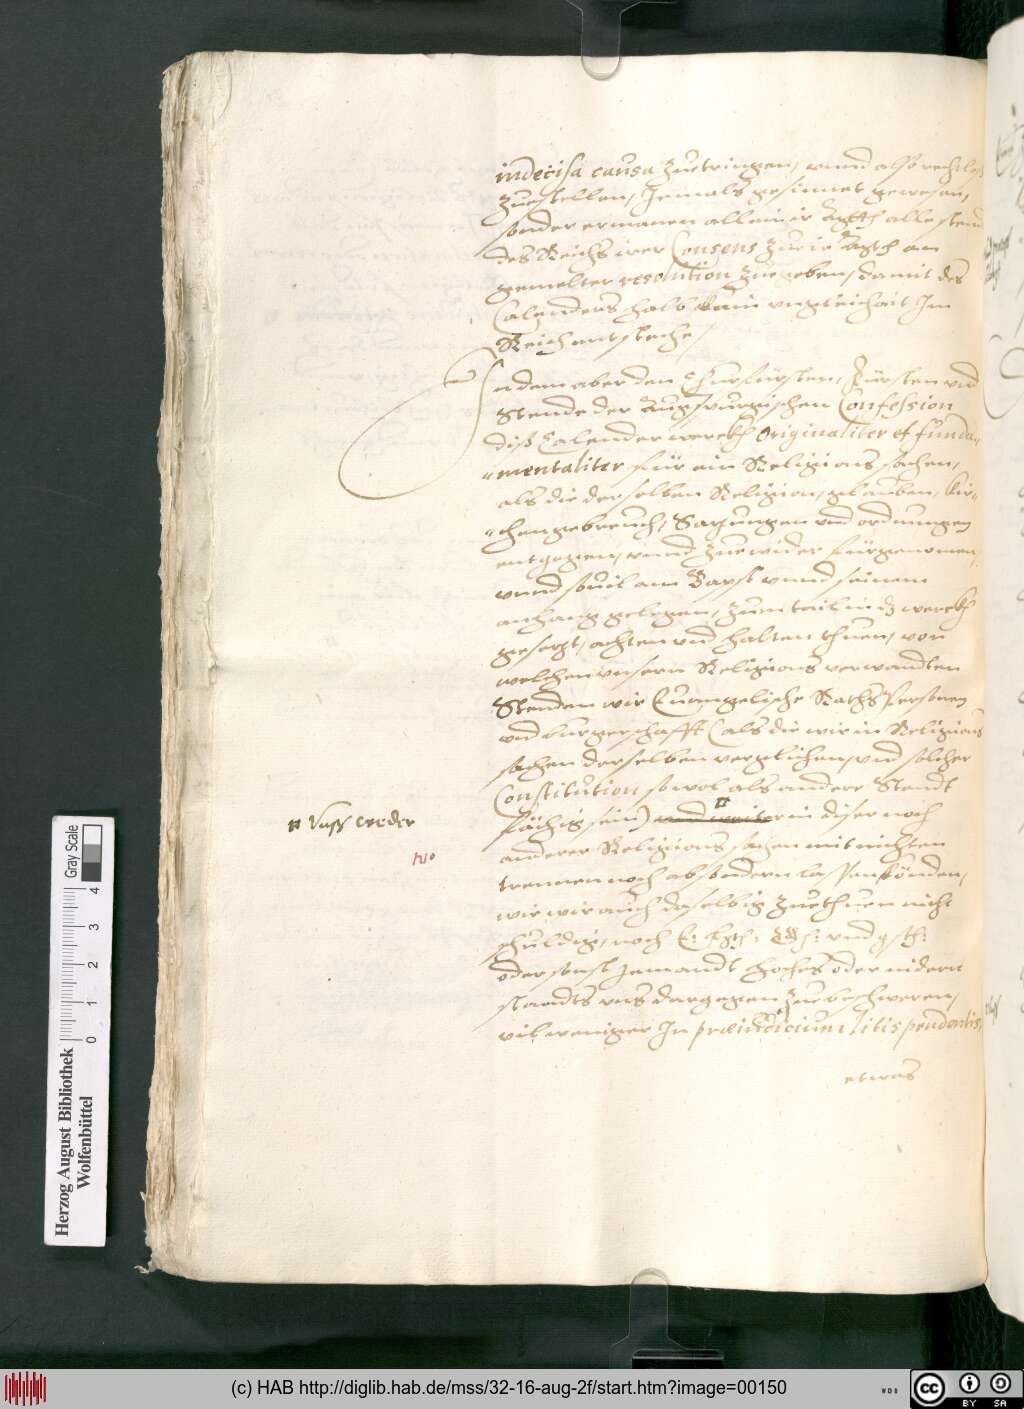 indecisa causa zuetringen, vnnd also rechtlos
zuestellen, Jemals gesinnet gewesen,
sonder ermanen allein ir alle stend
des Reichs irer Consens zu ir an
gemelter resolution zuegeben, damit des
Calenders halb kain vngleichait Im
Reich entstehe /
In dem aber den Churfürsten, Fürsten vnd
Stende der Augspurgischen Confession
diß Calender werckh Originaliter et funda-
-mentaliter für ein Religions sachen,
als die derselben Religion, glauben, Kir-
-chengebreuch, Sazungen vnd ordnungen
entgegen, vnnd zuewider fürgenomen,
vnnd souil am Bapst vnnd seinem
anhang gelegen, zum tail in dz werckh
gesezt, achten vnd halten thuen, von
welchen vnsern Religions verwandten
Stenden wir Euangelische Raths Personen
vnd burgerschafft (als die wir in Religions
sachen derselben verglichen, vnd solcher
Constitution sowol als andere Stendt
fächig sein) vnd weiter in diser noch
anderer Religions sachen mit nichten
trennen noch absondern lassen könden,
wie wir auch daselbig zuethuen nicht
schuldig, noch E: vnd gst:
oder sonst Jemandt hoches oder nidern
standts vns dargegen zubeschweren,
vil weniger In præiudicium litis pendentis,
etwas
Vnss weder
(c) HAB http://diglib.hab.de/mss/32-16-aug-2f/start.htm?image=00150
Herzog August Bibliothek
Wolfenbüttel
0 1 2 3 4
Gray Scale
WDB
cc BY SA